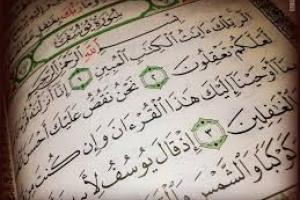 سُورَةُ يُوسُفَ
بِسْمِ اللَّهِ الرَّحْمَٰنِ الرَّحِيمِ
الٓر تِلْكَ ءَايَٰتُ ٱلْكِتَٰبِ ٱلْمُبِينِ ١ إِنَّآ أَنزَلْنَٰهُ
لَّعَلَّكُمْ تَعْقِلُونَ ٢ نَحْنُ نَقُصُّ عَلَيْكَ أَحْسَنَ
بِمَآ أَوْحَيْنَآ إِلَيْكَ هَٰذَا ٱلْقُرْءَانَ وَإِن كُنتَ مِن
ٱلْغَٰفِلِينَ ٣ إِذْ قَالَ يُوسُفُ
كَوْكَبًا وَٱلشَّمْسَ